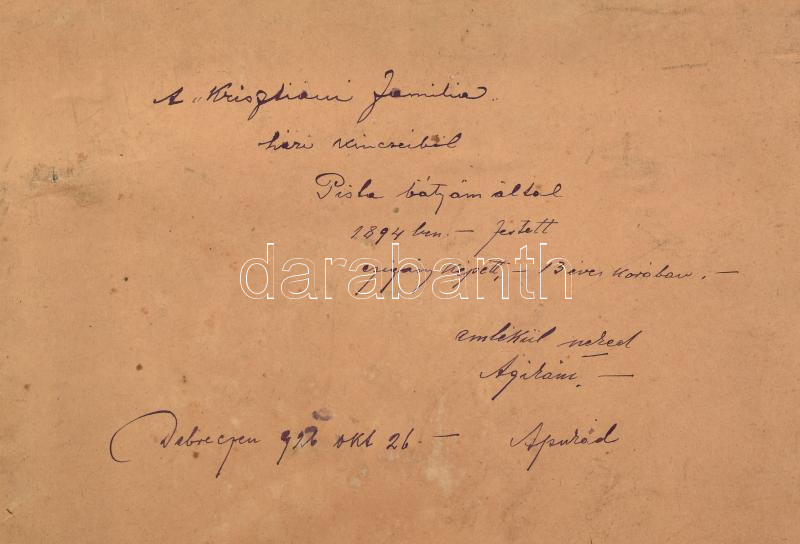 A „Krisztiani Familia”
házi kincseiből
Pista bátyám által
1894 ben. – festett
cigány képet, – 13 éves korában. –
emlékül neked
Ágikám. –
Debreczen 926 okt 26. – Apukád
darabanth